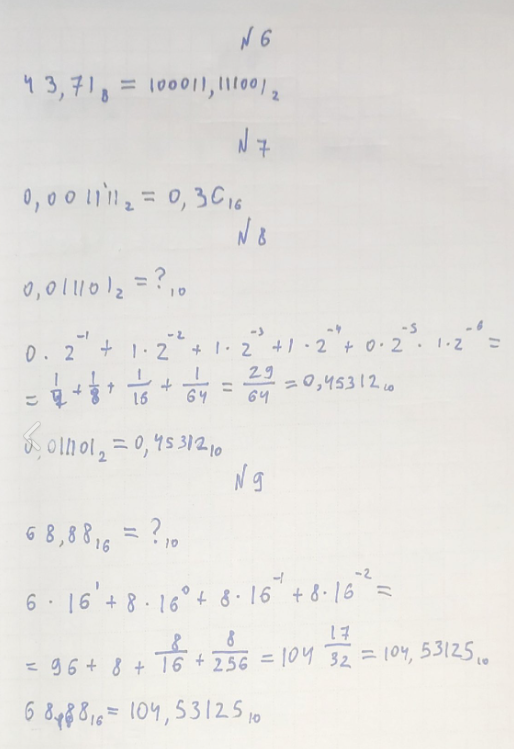 N 6
43,71₈ = 100011,111001₂
N 7
0,001111₂ = 0,3C₁₆
N 8
0,011101₂ = ?₁₀
0 · 2⁻¹ + 1 · 2⁻² + 1 · 2⁻³ + 1 · 2⁻⁴ + 0 · 2⁻⁵ · 1 · 2⁻⁶ =
= 1/4 + 1/8 + 1/16 + 1/64 = 29/64 = 0,45312₁₀
0,011101₂ = 0,45312₁₀
N 9
68,88₁₆ = ?₁₀
6 · 16¹ + 8 · 16⁰ + 8 · 16⁻¹ + 8 · 16⁻² =
= 96 + 8 + 8/16 + 8/256 = 104 17/32 = 104,53125₁₀
68,88₁₆ = 104,53125₁₀